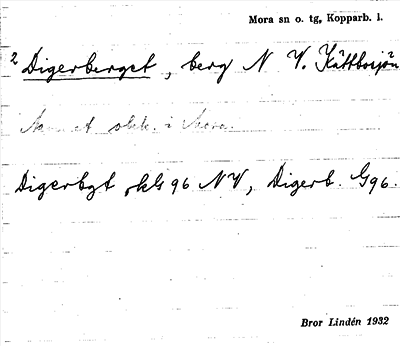 Mora sn o. tg, Kopparb. l.
2 Digerberget, berg N V. Kättbosjön
Namnet okk. i Mora.
Digerbgt skG96 NV, Digerb. G96.
Bror Lindén 1932